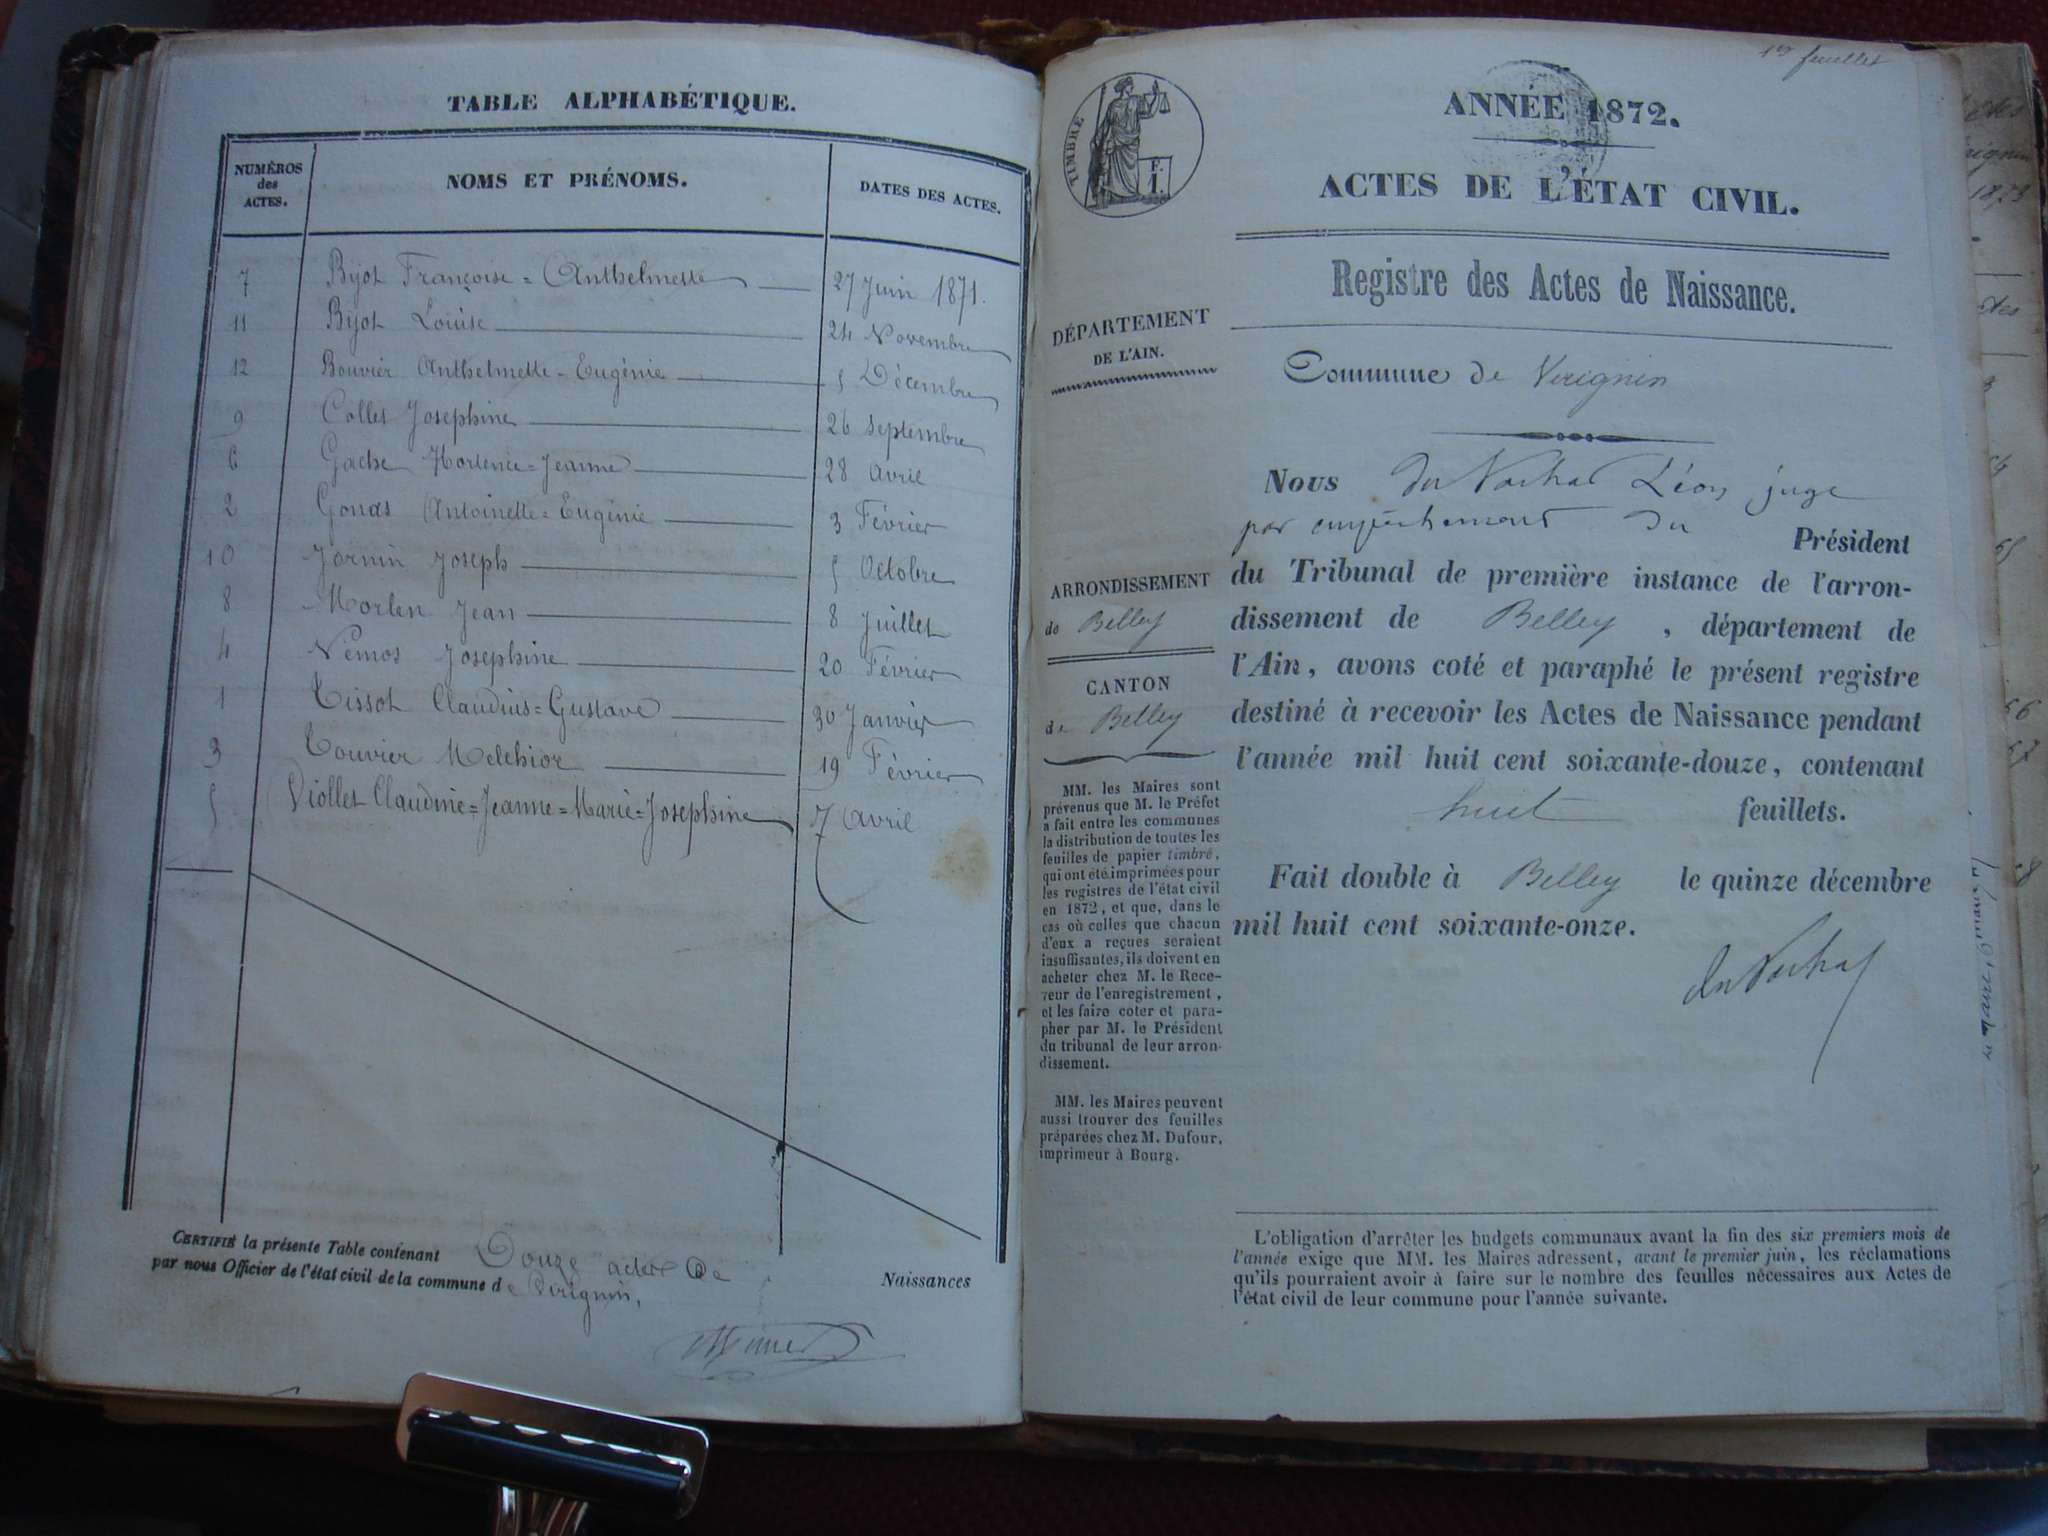 TABLE ALPHABÉTIQUE.
NUMÉROS
des
ACTES.
NOMS ET PRÉNOMS.
DATES DES ACTES.
7 Bijot Françoise = Anthelmette 27 Juin 1871.
11 Bijot Louise 24 Novembre
12 Bouvier Anthelmette = Eugénie 5 Décembre
9 Collet Josephine 26 Septembre
6 Gache Hortense = Jeanne 28 Avril
2 Antoinette = Eugénie 3 Février
10 Joseph 5 Octobre
8 Jean 8 Juillet
4 Josephine 20 Février
1 Tissot Claudius = Gustave 30 Janvier
3 Touvier Melchior 19 Février
5 Viollet Claudine = Jeanne = Marie = Josephine 7 Avril
CERTIFIÉ la présente Table contenant Douze actes De
par nous Officier de l'état civil de la commune de Virignin,
Naissances
1er feuillet
TIMBRE
F.
1.
ANNÉE 1872.
ACTES DE L'ÉTAT CIVIL.
Registre des Actes de Naissance.
DÉPARTEMENT
DE L'AIN.
Commune de Virignin
Nous Léon juge
par empêchement du Président
du Tribunal de première instance de l'arron-
dissement de Belley, département de
l'Ain, avons coté et paraphé le présent registre
destiné à recevoir les Actes de Naissance pendant
l'année mil huit cent soixante-douze, contenant
huit feuillets.
Fait double à Belley le quinze décembre
mil huit cent soixante-onze.
ARRONDISSEMENT
de Belley
CANTON
de Belley
MM. les Maires sont
prévenus que M. le Préfet
a fait entre les communes
la distribution de toutes les
feuilles de papier timbré,
qui ont été imprimées pour
les registres de l'état civil
en 1872, et que, dans le
cas où celles que chacun
d'eux a reçues seraient
insuffisantes, ils doivent en
acheter chez M. le Rece-
veur de l'enregistrement,
et les faire coter et para-
pher par M. le Président
du tribunal de leur arron-
dissement.
MM. les Maires peuvent
aussi trouver des feuilles
préparées chez M. Dufour,
imprimeur à Bourg.
L'obligation d'arrêter les budgets communaux avant la fin des six premiers mois de
l'année exige que MM. les Maires adressent, avant le premier juin, les réclamations
qu'ils pourraient avoir à faire sur le nombre des feuilles nécessaires aux Actes de
l'état civil de leur commune pour l'année suivante.